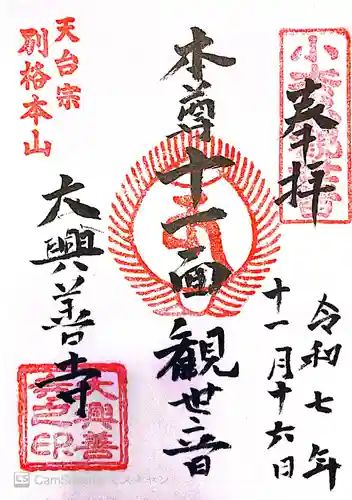 奉拝
令和七年
十一月十六日
本尊十一面観世音
天台宗
別格本山
大興善寺
大興善
寺之印
CS CamScanner